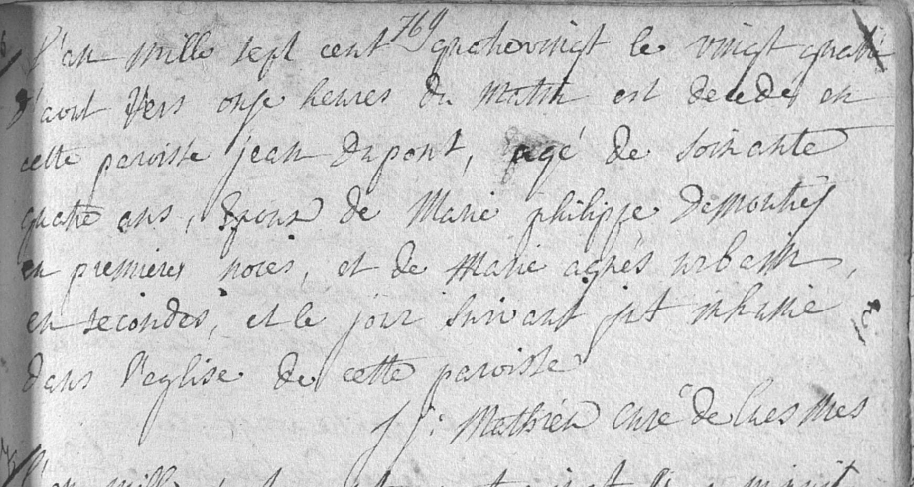 L'an mille sept cent quatrevingt le vingt quatre
769
d'aout vers onze heures du matin est decede en
cette paroisse jean Dupont, agé de soixante
quatre ans, Epoux de Marie philippe Demonties
en premieres noces, et de Marie agnès urbain,
en secondes, et le jour suivant fut inhumé
dans l'eglise de cette paroisse
J J: Mathieu Curé de
L'an mille